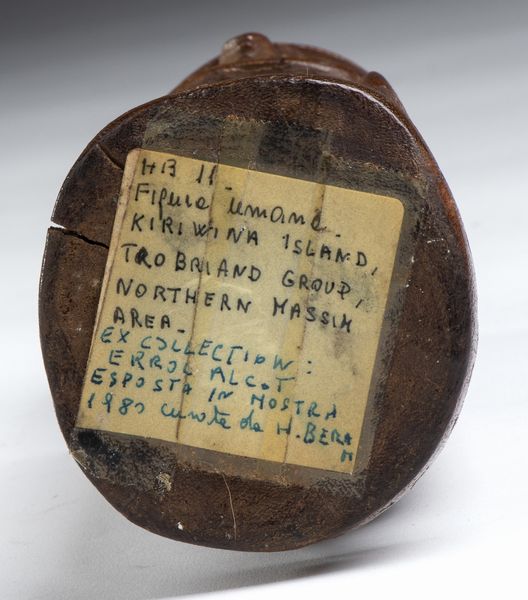 HB 11
Figura umana.
KIRIWINA ISLAND,
TROBRIAND GROUP,
NORTHERN MASSIM
AREA.
EX COLLECTION:
ERROL ALCOT
ESPOSTA IN MOSTRA
1980 curata da H. BERAN